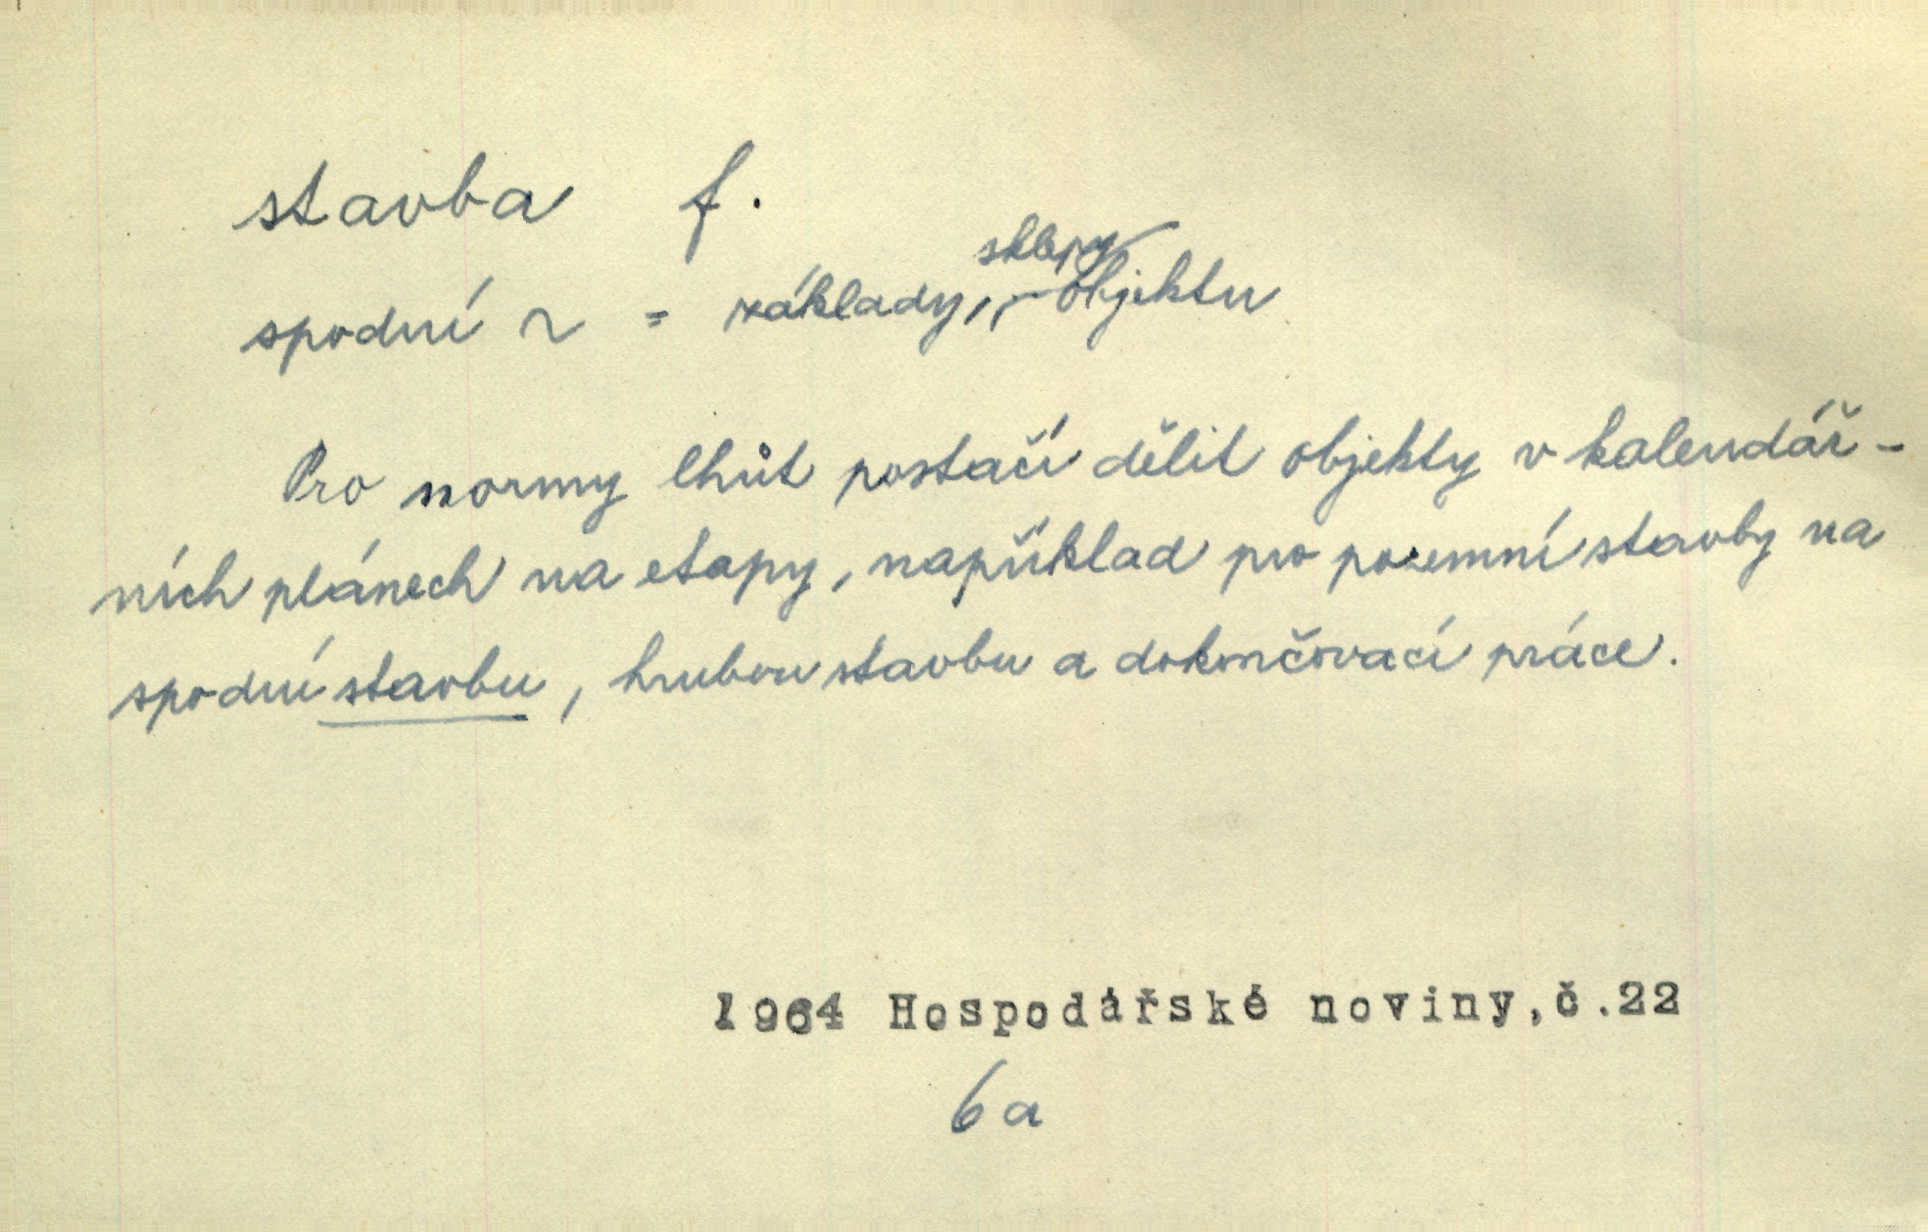 stavba f.
sklepy
spodní ~ = základy, objektu
Pro normy lhůt postačí dělit objekty v kalendář-
ních plánech na etapy, například pro pozemní stavby na
spodní stavbu, hrubou stavbu a dokončovací práce.
1964 Hospodářské noviny,č.22
6a